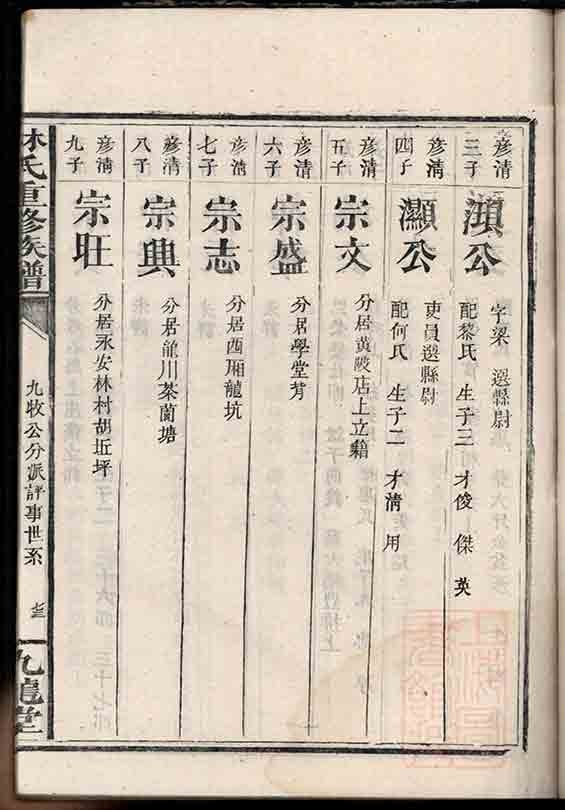 彥清
三子
澒公
字梁 選縣尉
配黎氏 生子三 才俊 傑 英
彥清
四子
灝公
吏員選縣尉
配何氏 生子二 才清 用
彥清
五子
宗文
分居黃陂店上立籍
彥清
六子
宗盛
分居學堂背
彥清
七子
宗志
分居西厢龍坑
彥清
八子
宗興
分居龍川茶蘭塘
彥清
九子
宗旺
分居永安林村胡坵坪
林氏重修族譜
九牧公分派評事世系
九龍堂